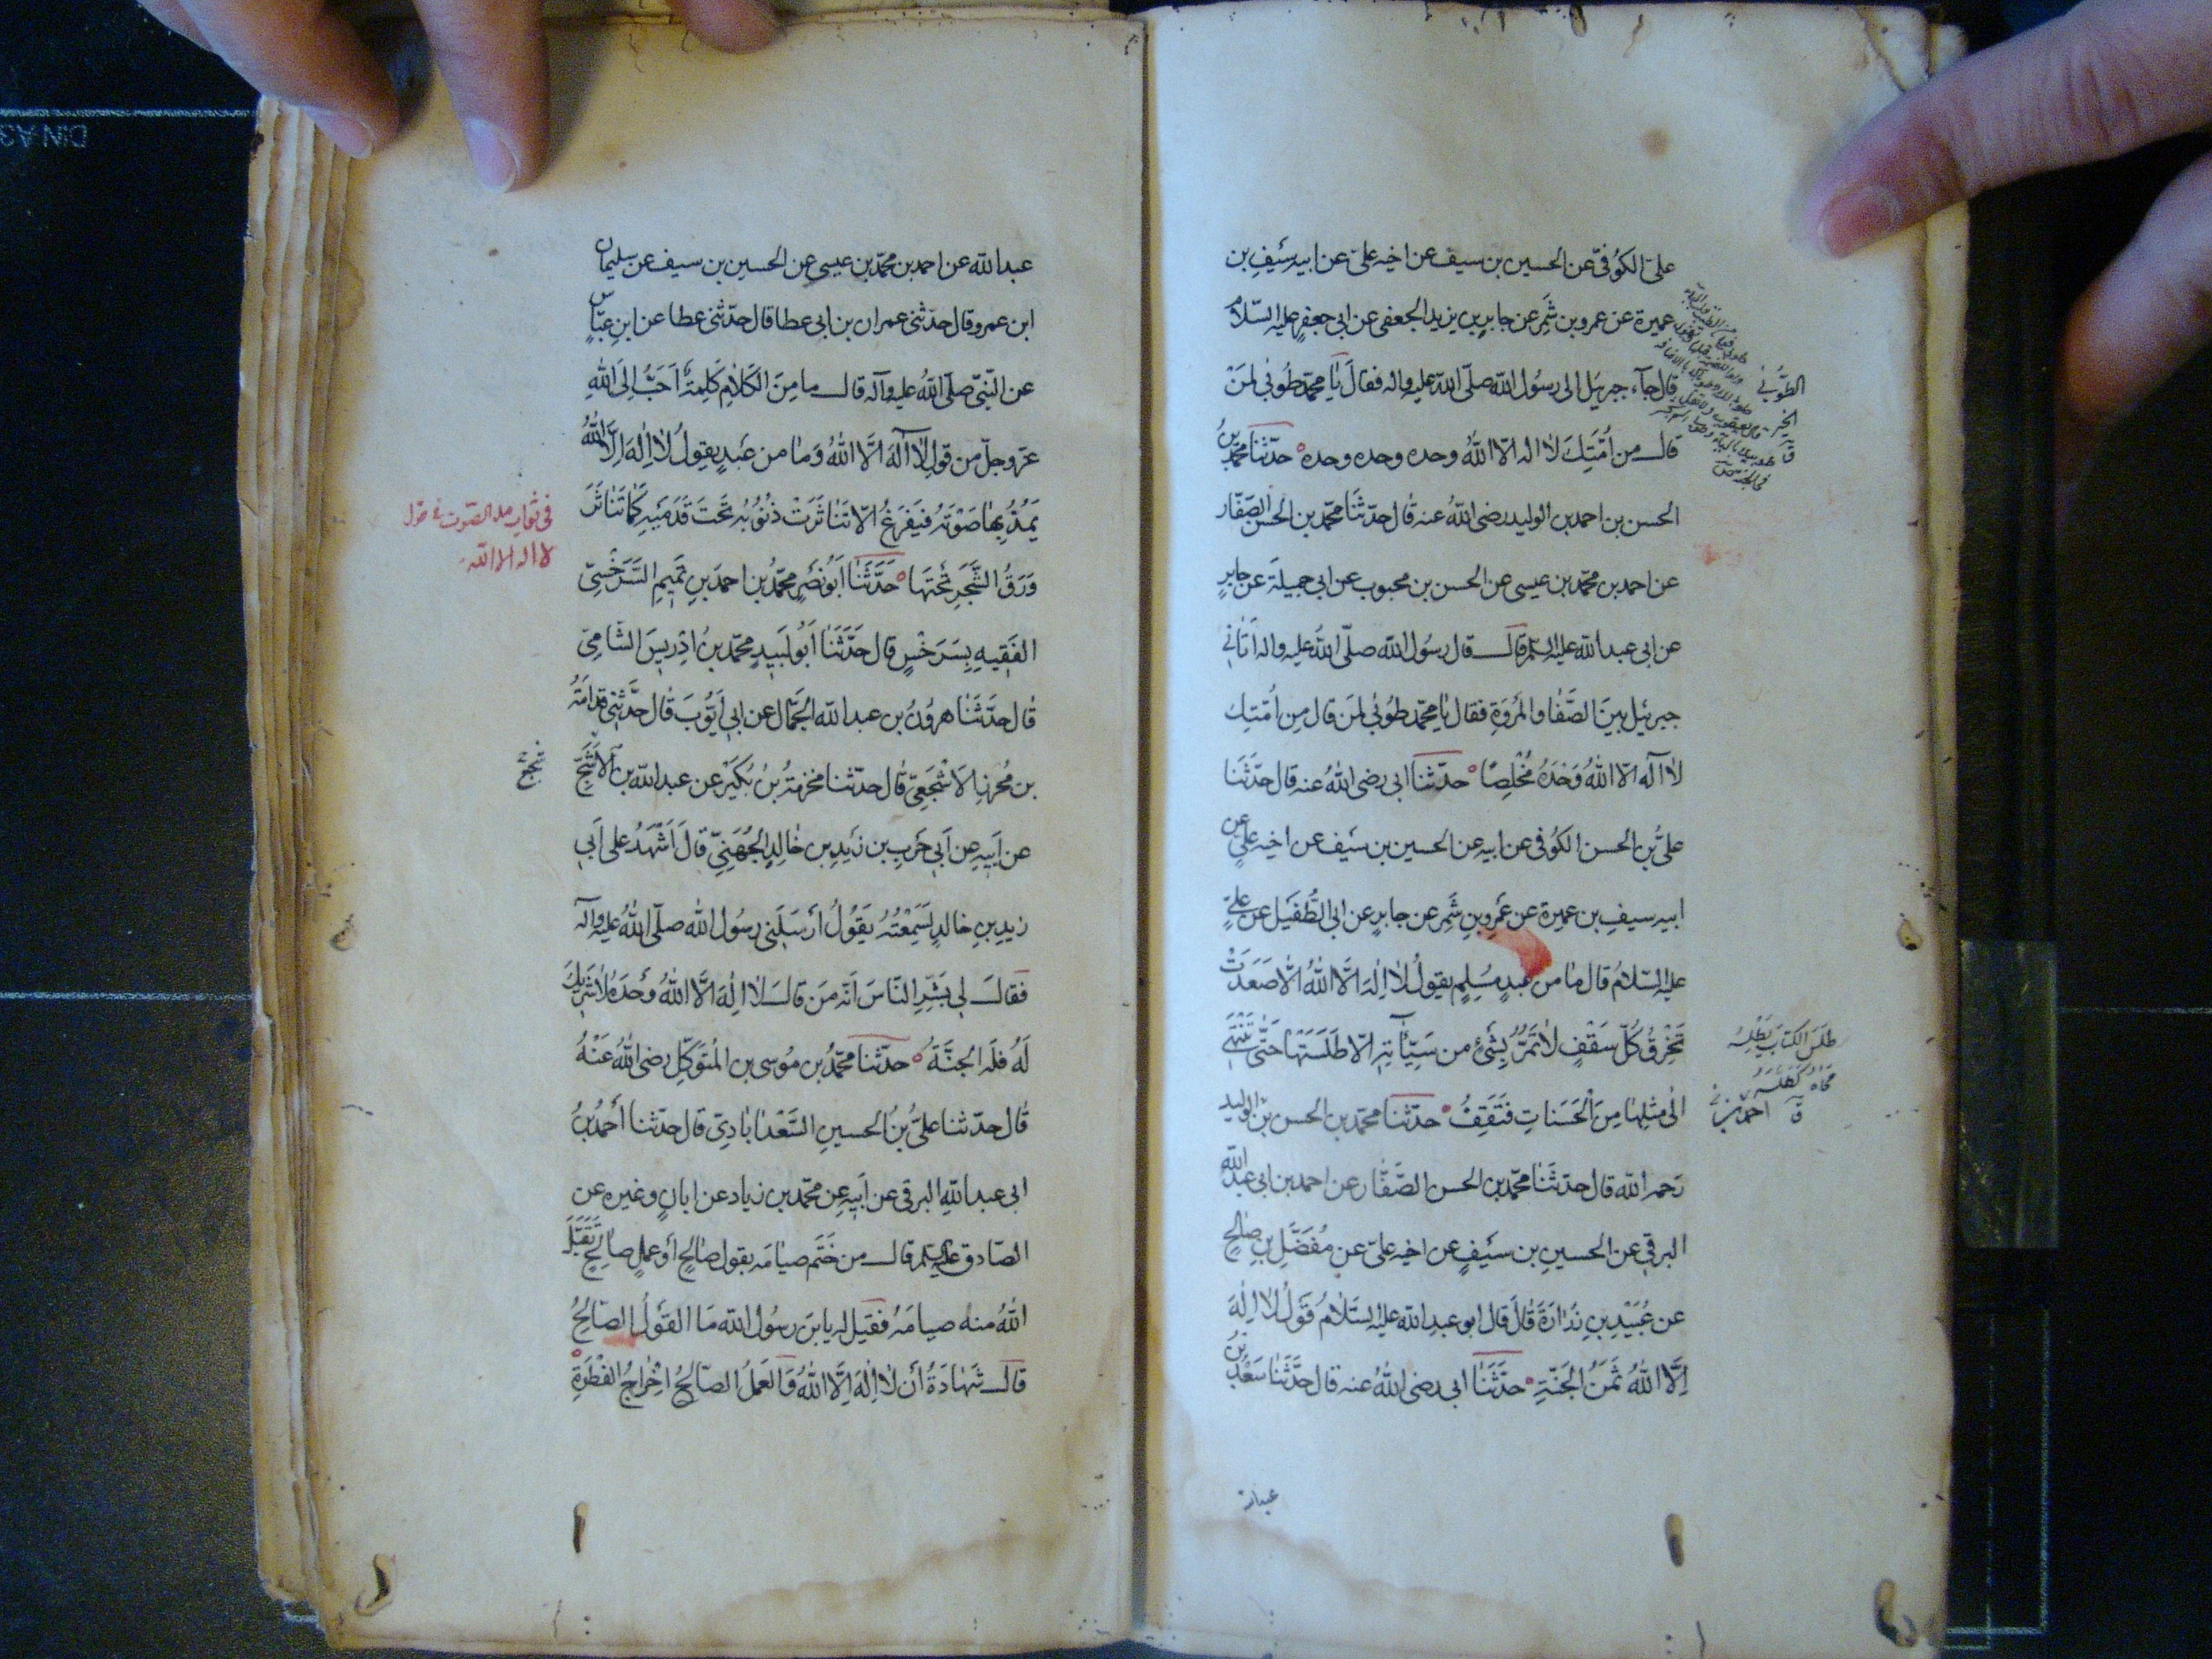 علی الكوفی عن الحسین بن سیف عن اخیه علی عن ابیه سَیْفِ بن
عمیرة عن عمرو بن شَمِر عن جابرِ بن یزید الجعفی عن ابی جعفرٍ علیه السّلام
قال جآء جبرئیل الی رسُول الله صلّی الله علیه واله فقالَ یَا محمّد طُوبیٰ لِمَنْ
قال من اُمّتِكَ لا اله الّا اللهُ وحده وحده وحده حدّثنا محمّد بن
الحسن بن احمد بن الولید رضی اللهُ عنه قٰال حدّثنَا محمّد بن الحسن الصَفّار
عن احمد بن محمّد بن عیسی عن الحسن بن محبوب عن ابی جمیلَة عن جابرٍ
عن ابی عبد الله علیه السلم قال قال رسُول الله صلّی اللهُ علیه واله اَتٰانی
جبرئیل بینَ الصَّفٰا والمَرْوَةِ فقال یٰا محمّد طُوبیٰ لمَن قال مِن اُمّتِكَ
لٰا آله الّا اللهُ وَحْدَهُ مُخْلِصًا حدّثنا ابی رضی اللهُ عنه قال حدّثَنا
علیُّ بن الحسن الكُوفی عن ابیه عن الحسین بن سَیْف عن اخیه علیٍ عن
ابیه سیفِ بن عمیرة عن عَمْرِو بنِ شَمِر عن جابرٍ عن ابی الطُّفَیْل عن علیٍّ
علیه السّلامُ قال مٰا من عبدٍ مُسْلِمٍ یقولُ لٰا اِلٰهَ الَّا اللهُ الّٰا صَعَدَتْ
تَخْرِقُ كُلّ سَقْفٍ لٰا تَمُرُّ بِشَیْءٍ من سَیِّئٰاتِهِ الّا طَلَسَتْهٰا حَتّٰی تَنْتَهِیَ
الٰی مثلِهٰا مِنَ الْحَسَنٰاتِ فتَقِفُ حدّثنا محمّد بن الحسن بن الولید
رَحمه الله قال حدّثَنٰا محمّد بن الحسن الصَّفّٰار عن احمد بن ابی عبد الله
البرقی عن الحسینِ بن سَیْفٍ عن اخیه علیّ عن مُفَضَّلِ بنِ صٰالحٍ
عن عُبَیْدِ بنِ زُرٰارَةَ قٰالَ قال ابو عبدِ الله علیه السَّلٰامُ قَوْلُ لٰا اِلٰهَ
اِلَّا اللهُ ثَمَنُ الجَنّةِ حدّثَنٰا ابی رضی اللهُ عنه قال حدَّثَنٰا سَعْدُ بْنُ
عبد الله
الطُوبیٰ
الخیر
ق
طَلَسَ الكتابَ یَطْلِسُه
مَحٰاهُ كَطَلَّسَهُ
ق
عبد الله عن احمد بن محمّد بن عیسی عن الحسین بن سیف عن سلیمان
ابن عمرو قال حدّثنی عمران بن ابی عطا قال حدّثنی عطا عن ابنِ عبّاسٍ
عن النّبیّ صلّی اللهُ علیه وآله قال ما مِنَ الكَلٰامِ كَلِمةٌ اَحَبُّ اِلَی اللهِ
عزّ وجلّ من قولِ لٰا آلهَ الَّا اللهُ وَمٰا من عَبدٍ یقولُ لٰا اِلٰهَ اِلَّا اللهُ
یَمُدُّ بِهٰا صَوْتَهُ فَیَفْرَغُ الّا تَنٰاثَرَتْ ذُنُوبُهُ تحْتَ قَدَمَیْهِ كَمٰا تَنٰاثَرَ
وَرَقُ الشَّجَرِ تَحْتَهَا حَدَّثَنٰا اَبُو نَصْرٍ محمّدُ بن احمد بنِ تَمیمِ السَّرَخْسِیّ
الفَقِیهِ بِسَرَخْسٍ قال حَدَّثَنٰا اَبُو لَبِیدٍ محمّد بنُ اِدْرِیسَ الشٰامِیّ
قٰال حدّثَنٰا هرُونُ بن عبد الله الجَمّال عن ابی اَیُّوبَ قٰال حدَّثَنِی قدامَةُ
بن مُحرِزٍ الاَشْجَعِیّ قٰال حدّثنا مخرَمَةُ بنُ بُكَیْر عن عبد الله بن الاَشَجِّ
عن اَبِیهِ عن اَبِی حَرْبِ بن زَیْدِ بن خٰالِدٍ الجُهَنِیّ قٰال اَشْهَدُ علی اَبِی
زیدِ بنِ خالدٍ لَسَمِعْتُهُ یَقُولُ اَرْسَلَنِی رسُول الله صلّی اللهُ علیه وآله
فقال لِی بَشِّرِ النّٰاسَ اَنّه مَن قالَ لٰا اِلٰهَ الَّا اللهُ وَحْدَهُ لٰا شَرِیكَ
لَهُ فلَه الجَنَّةُ حدّثنا محمّدُ بن مُوسی بن المُتَوَكّلِ رضی اللهُ عَنْهُ
قٰال حدّثنا علیُّ بنُ الحسینِ السَّعْدٰابٰادِیّ قٰال حدّثنا اَحمَدُ بنُ
ابی عبد اللهِ البرقی عن اَبِیهِ عن محمّد بن زیاد عن ابٰانٍ وغیره عن
الصّادق علیه السلم قال من خَتَم صیٰامَه بقول صٰالحٍ اَو عملٍ صٰالحٍ تَقَبَّلَ
اللهُ منه صیٰامَهُ فقیل له یابنَ رسُول الله مَا القَوْلُ الصّٰالِحُ
قال شَهٰادَةُ اَن لٰا اِلٰهَ اِلَّا اللهُ وَالعَمَلُ الصّٰالحُ اِخْرٰاجُ الفِطْرَةِ
فی ثواب مد الصّوت فی قول
لا اله الا الله